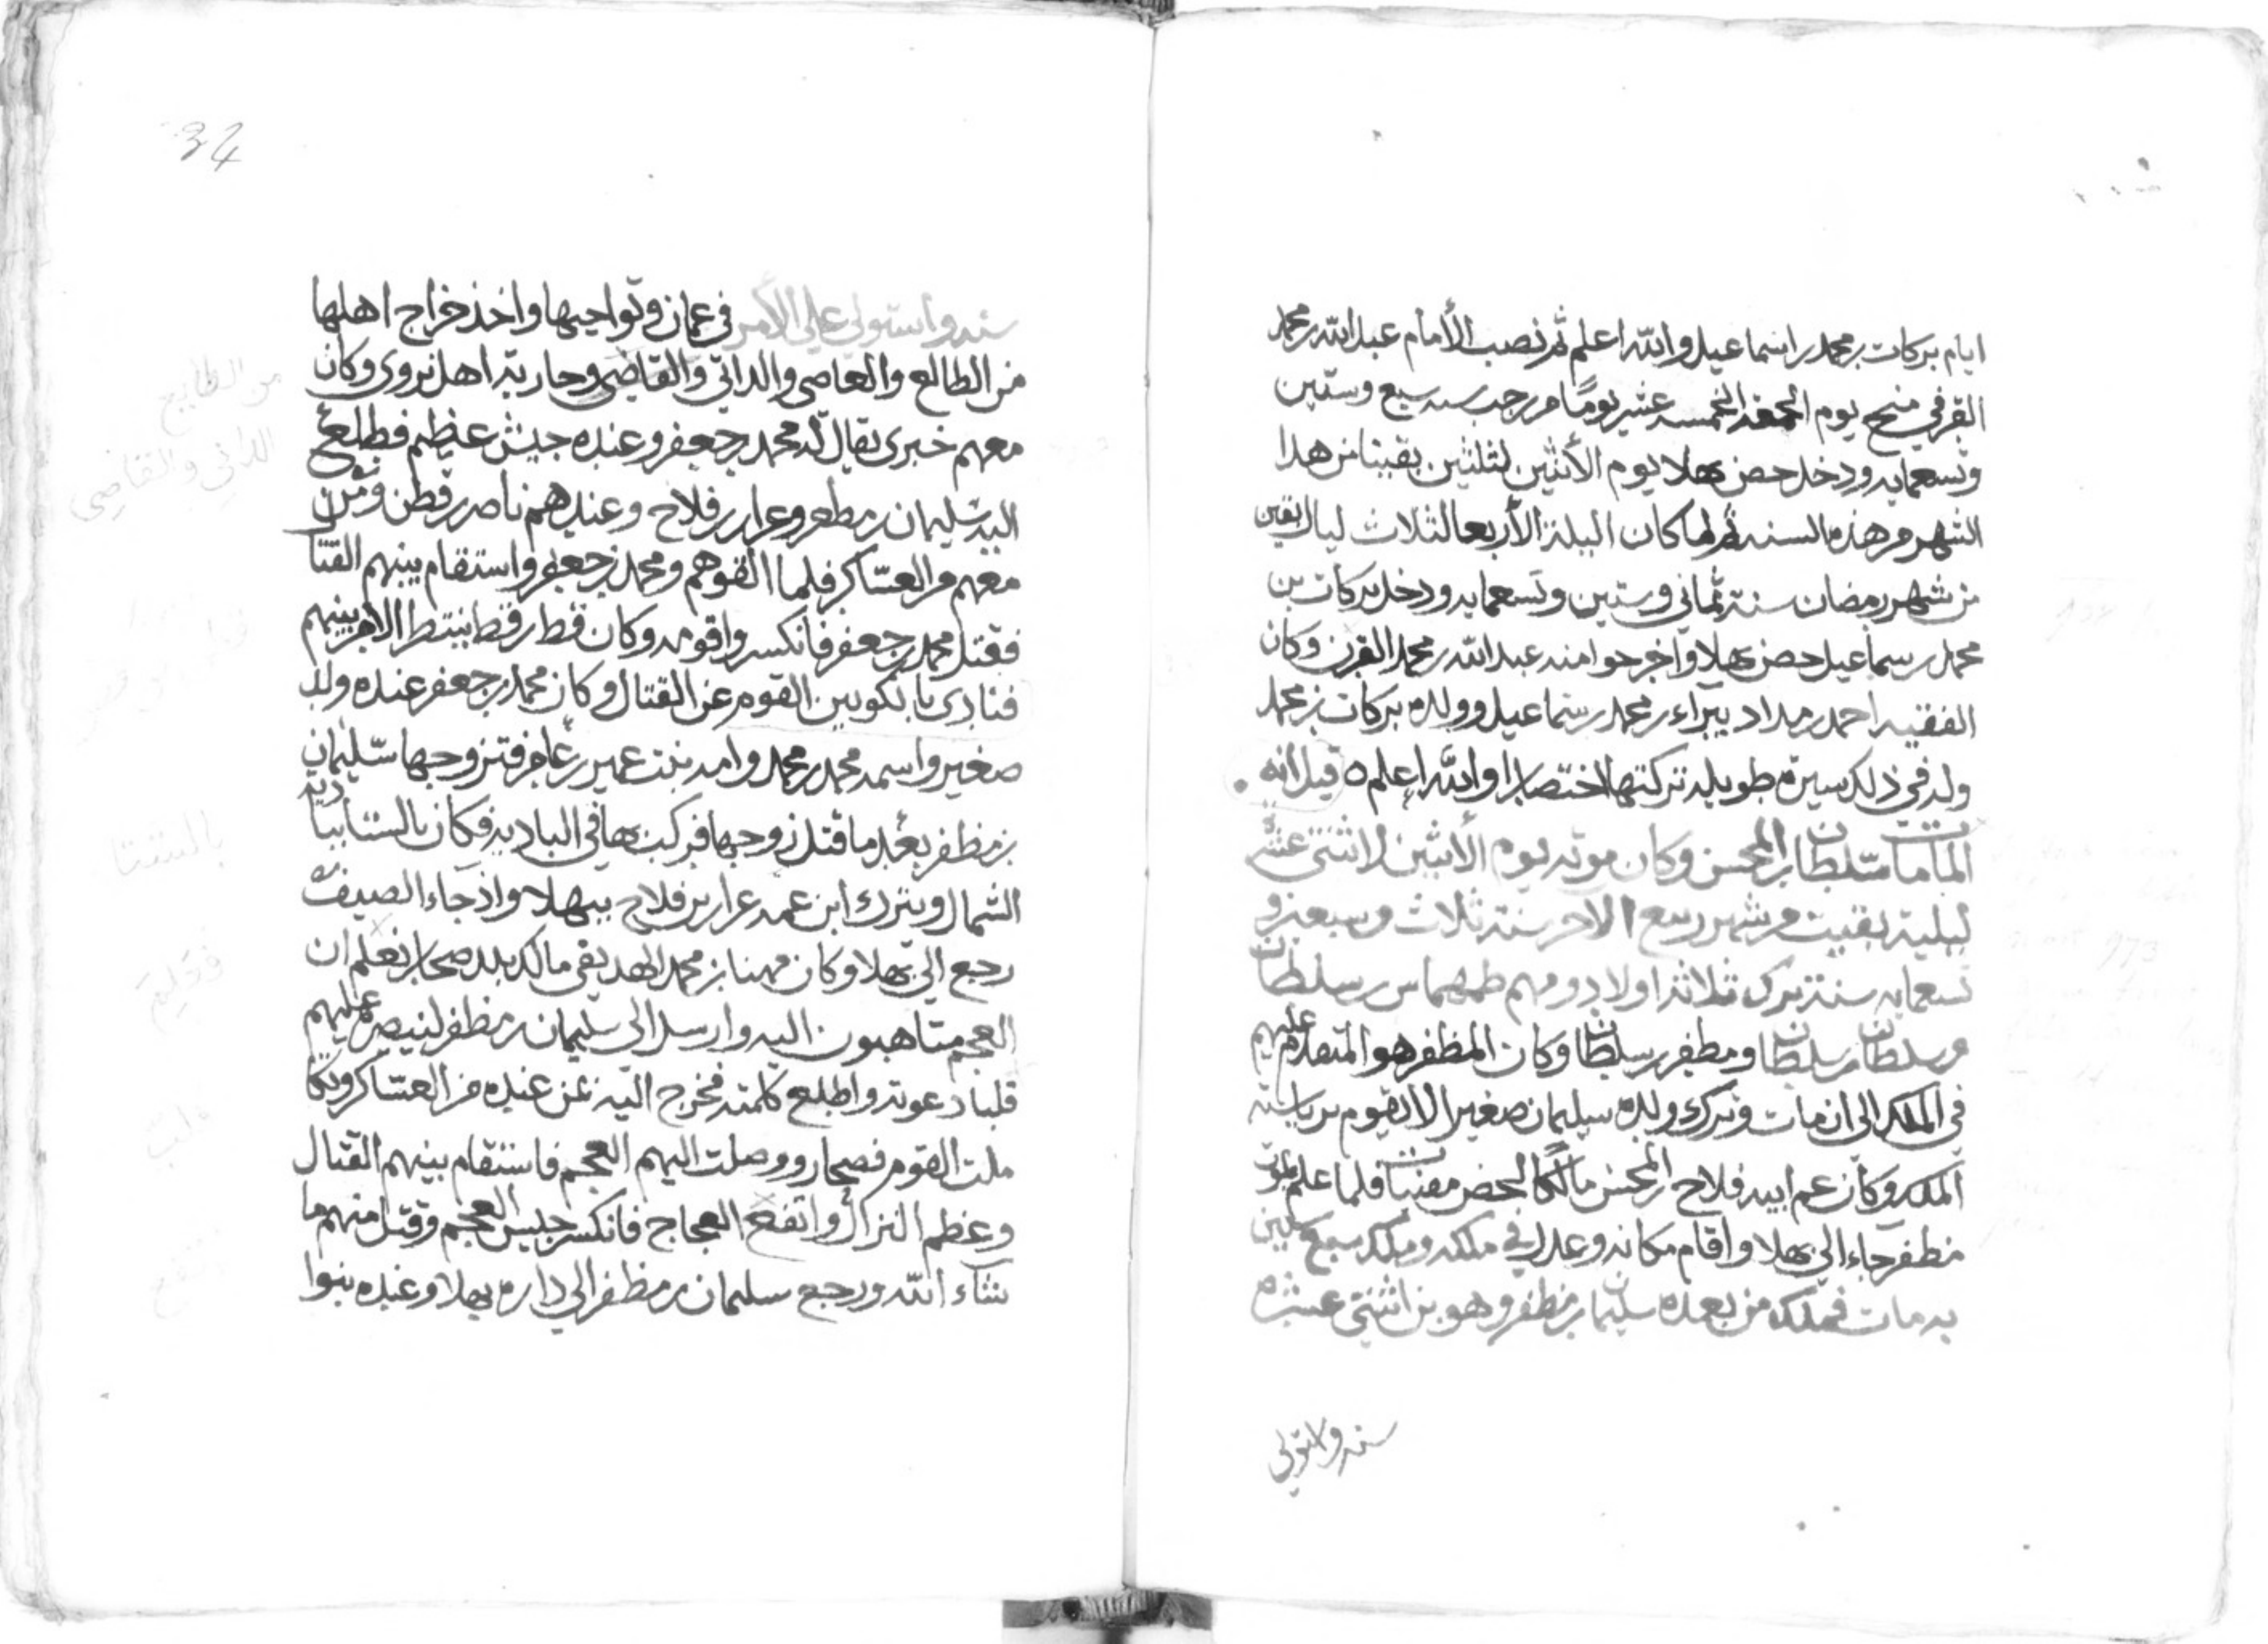 ايام بركات بن محمد بن اسماعيل والله اعلم ثم نصب الأمام عبد الله بن محمد
القرن في منح يوم الجمعه لخمسه عشر يومًا من رجب سنه سبع وستين
وتسعمايه ودخل حصن بهلا يوم الأثنين لثلثين بقيتا من هذا
الشهر من هذه السنه ثم لما كان البيلة الأربعا لثلاث ليال بقين
من شهر رمضان سنة ثماني وستين وتسعمايه ودخل بركات بن
محمد بن سماعيل حصن بهلا واخرجوا منه عبد الله بن محمد القرن وكان
الفقيه احمد بن مداد يبراء من محمد بن سماعيل وولده بركات بن محمد
وله في ذلك سيرة طويله تركتها اختصارا والله اعلم ٥ قيل انه
لما مات سلطان بن المحسن وكان موته يوم الأثنين لاثنتي عشر
ليلية بقيت من شهر ربيع الاخر سنة ثلاث وسبعين و
تسعمايه سنة ترك ثلاثة اولاد ومهم طهماس بن سلطان
وسلطان بن سلطان ومظفر بن سلطان وكان المظفر هو المتقدم عليهم
في الملك الى ان مات وترك ولده سيلمان صغيرا لا يقوم برياسة
الملك وكان عم ابيه فلاح بن المحسن مالكا لحصن مقنيات فلما علم بموت
مظفر جاء الى بهلا واقام مكانه وعدل في ملكه وملك سبع سنين
يه مات فملك من بعده سليمان بن مظفر وهو بن اثنتي عشره
سنه واستولي
34
سنه واستولي علي الأمر في عمان ونواحيها واخذ خراج اهلها
من الطالع والعاصي والداني والقاضي وحاربته اهل نزوى وكان
معهم خبري يقال له محمد بن جعفر وعنده جيش عظيم فطلع
اليه سليمان بن مظفر وعرار بن فلاح وعندهم ناصر بن قطن ومن
معهم من العساكر فلما التقوهم ومحمد بن جعفر واستقام بينهم القتا
فقتل محمد بن جعفر فانكسروا قومه وكان قطن بن قطن ينتظر الامر بينهم
فنادى بالكف بين القوم عن القتال وكان محمد بن جعفر عنده ولد
صغير واسمه محمد بن محمد وامه بنت عمير بن عامر فتزوجها سليمان
بن مظفر بعد ما قتل زوجها فركب بها في الباديه فكان بالشتا بباديه
الشمال ويترك ابن عمه عرار بن فلاح ببهلا واذ جاء الصيف
رجع الى بهلا وكان مهنا بن محمد الهديفي مالك بلد صحار فعلم ان
العجم متاهبون اليه وارسل الى سليمان بن مظفر لينصره عليهم
فلبا دعوته واطلع كلمته فخرج اليه عن عنده من العساكر وتكا
ملت القوم فصحار ووصلت اليهم العجم فاستقام بينهم القتال
وعظم النزال واتفع العجاج فانكسر جليس العجم وقتل منهم ما
شاء الله ورجع سليمان بن مظفر الى داره ببهلا وعنده بنوا
من الطايع
الداني والقاضي
بالشتا